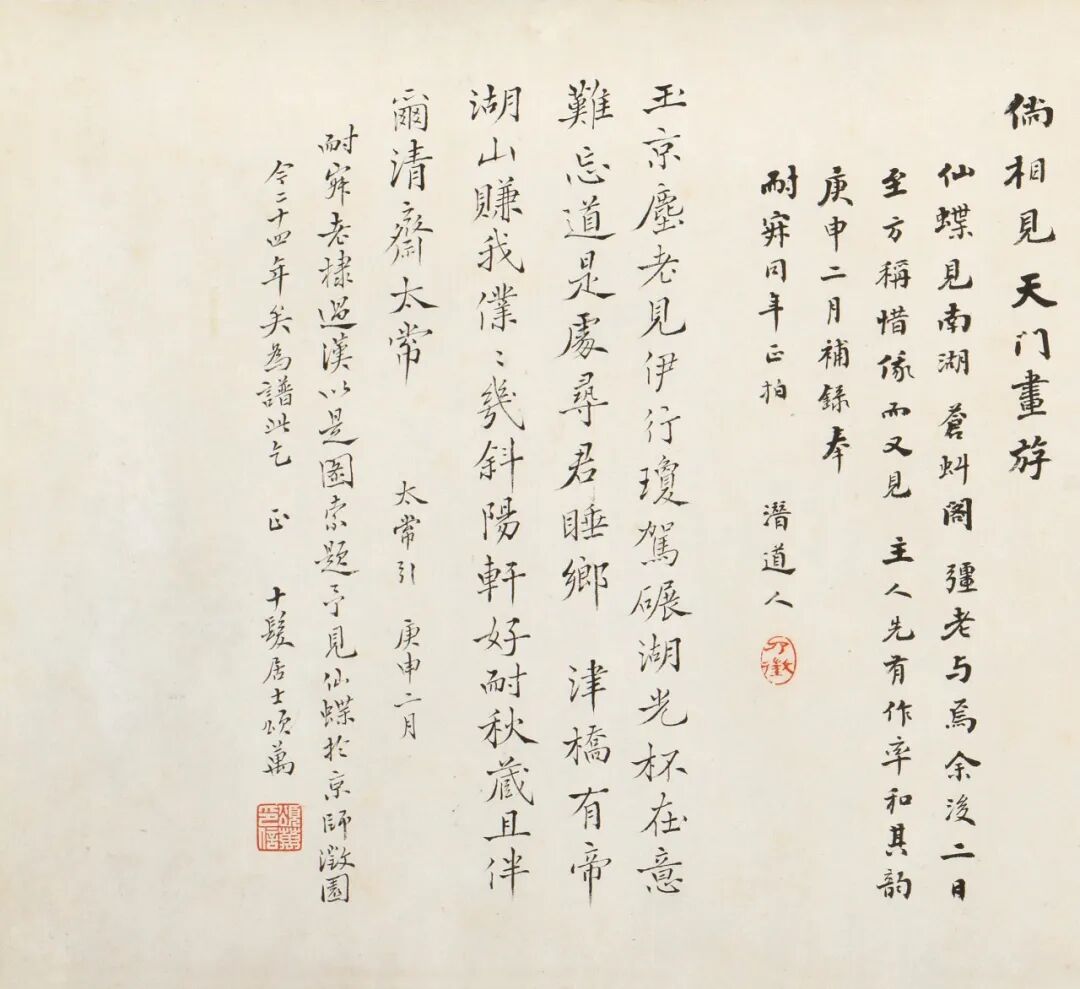 倘相見天门畫游
仙蝶見南湖蒼虯閣彊老与焉余後二日
至方稱惜俄而又見 主人先有作率和其韵
庚申二月補録奉
耐寂同年正拍 潛道人
玉京塵老見伊行瓊駕碾湖光杯在意
難忘道是處尋君睡鄉 津橋有帝
湖山賺我僕〻幾斜陽軒好耐秋藏且伴
爾清齋太常 太常引 庚申二月
耐寂老棣過漢以是圖索題予見仙蝶於京師澂園
今二十四年矣為譜此乞 正 十髮居士頌萬
頌萬印信